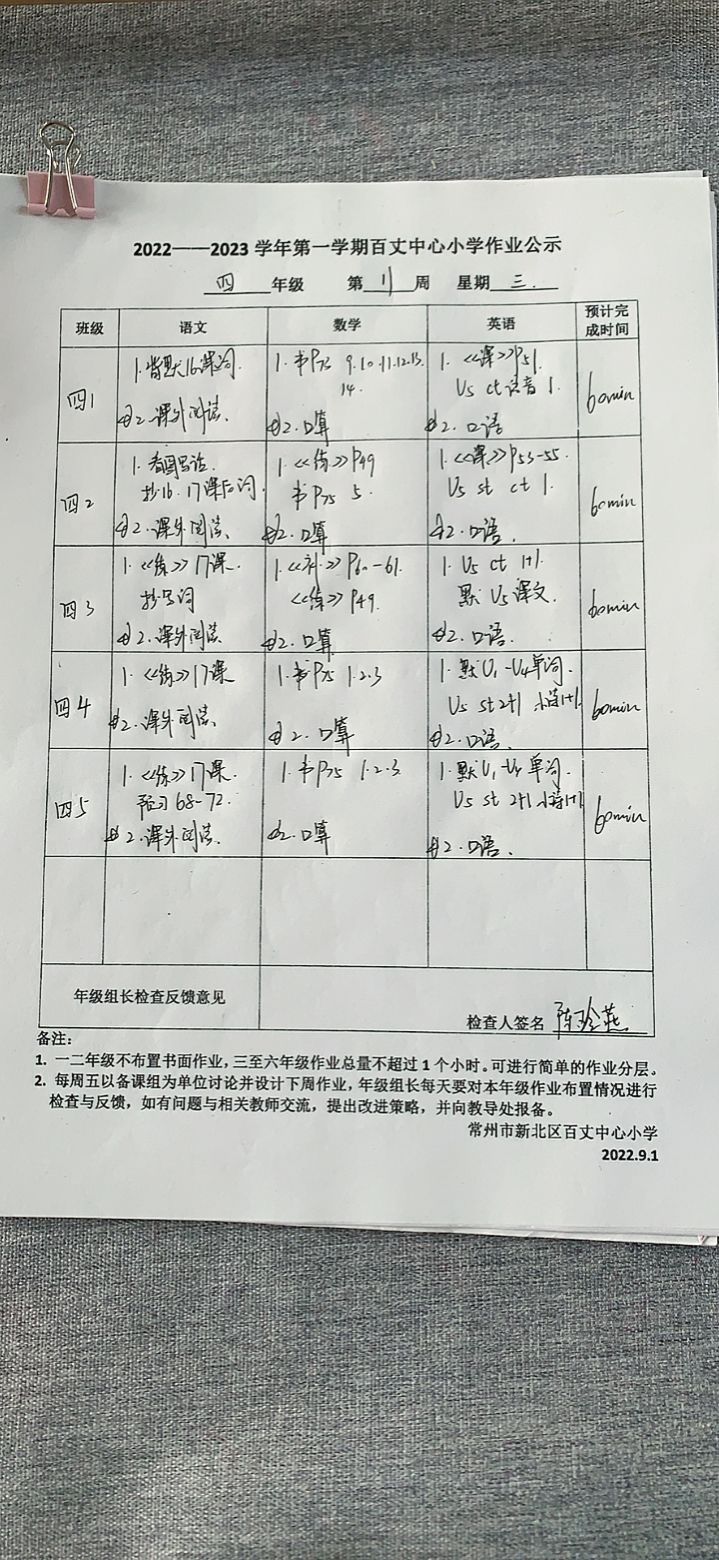 2022——2023 学年第一学期百丈中心小学作业公示
四 年级 第 11 周 星期 三.
班级 语文 数学 英语 预计完成时间
四1
1. 背默16课词.
2. 课外阅读.
1. 书P73 9.10.11.12.13.
14.
2. 口算
1. <<课>>P51.
U5 ct 语音 1.
2. 口语
60min
四2
1. 看图写话.
抄16. 17课后词.
2. 课外阅读.
1. <<练>> P49
书P75 5.
2. 口算
1. <<课>>P53-55.
U5 st ct 1.
2. 口语.
60min
四3
1. <<练>> 17课.
抄写词
2. 课外阅读
1. <<补>> P60-61.
<<练>> P49.
2. 口算
1. U5 ct 1+1.
默 U5 课文.
2. 口语.
60min
四4
1. <<练>> 17课
2. 课外阅读.
1. 书P75 1.2.3
2. 口算
1. 默U1-U4单词.
U5 st 2+1 1+1.
2. 口语.
60min
四5
1. <<练>> 17课.
预习 68-72.
2. 课外阅读.
1. 书P75 1.2.3
2. 口算
1. 默U1-U4 单词.
U5 st 2+1 1+1
2. 口语.
60min
年级组长检查反馈意见
检查人签名 陈玲燕
备注：
1. 一二年级不布置书面作业，三至六年级作业总量不超过 1 个小时。可进行简单的作业分层。
2. 每周五以备课组为单位讨论并设计下周作业，年级组长每天要对本年级作业布置情况进行
检查与反馈，如有问题与相关教师交流，提出改进策略，并向教导处报备。
常州市新北区百丈中心小学
2022.9.1